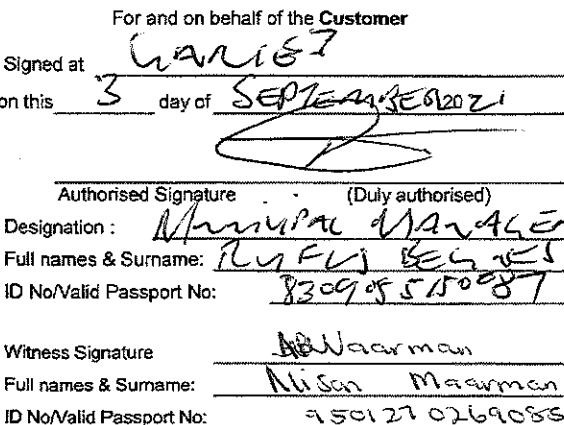 For and on behalf of the Customer
Signed at GARIES
on this 3 day of SEPTEMBER 2021
Authorised Signature (Duly authorised)
Designation : MUNICIPAL MANAGER
Full names & Surname: RUFUS BEUKES
ID No/Valid Passport No:
Witness Signature Maarman
Full names & Surname: Alison Maarman
ID No/Valid Passport No: